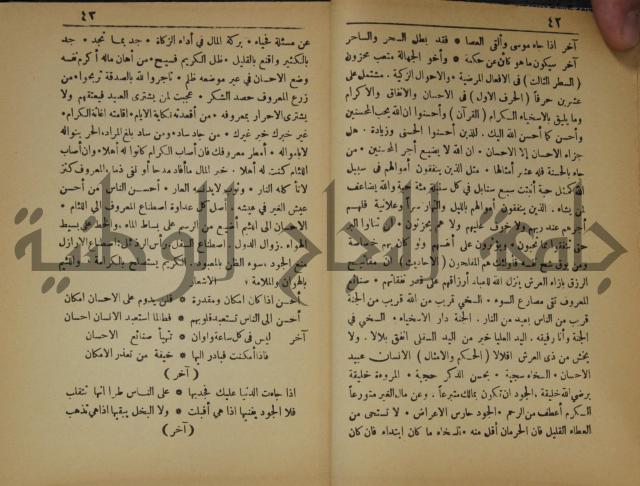 ٤٢
آخر اذا جاء موسى وألقى العصا * فقد بطل السحر والساحر
آخر سيكون ما هو كائن عن حكمة * وأخو الجهالة متعب محزون
(السطر الثالث) فى الافعال المرضية والاحوال الزكية . مشتمل على
عشرين حرفاً (الحرف الاول) فى الاحسان والانفاق والاكرام
وما يليق بالاسخياء الكرام (القرآن) وأحسنوا ان الله يحب المحسنين
وأحسن كما أحسن الله اليك . للذين أحسنوا الحسنى وزيادة . هل
جزاء الاحسان إلا الاحسان * ان الله لا يضيع أجر المحسنين * من
جاء بالحسنة فله عشر أمثالها * مثل الذين ينفقون أموالهم فى سبيل
الله كمثل حبة أنبتت سبع سنابل فى كل سنبلة مئة حبة والله يضاعف
لمن يشاء . الذين ينفقون أموالهم بالليل والنهار سراً وعلانية فلهم
أجرهم عند ربهم ولا خوف عليهم ولا هم يحزنون * لن تنالوا البر
حتى تنفقوا مما تحبون * ويؤثرون على أنفسهم ولو كان بهم خصاصة
ومن يوق شح نفسه فأولئك هم المفلحون (الاحاديث) ان مفاتيح
الرزق بازاء العرش ينزل الله للعباد أرزاقهم على قدر نفقاتهم * صنائع
المعروف تقى مصارع السوء * السخى قريب من الله قريب من الجنة
قريب من الناس بعيد من النار . الجنة دار الاسخياء * السخى فى
الجنة وأنا رفيقه . اليد العليا خير من اليد السفلى أنفق بلالا . ولا
تخش من ذى العرش اقلالا (الحكم والامثال) الانسان عبيد
الاحسان * السخاء سجية * يحسن الذكر حجية * المروءة خليقة
يرضى الله خليقة . الجود ان تكون بمالك متبرعاً . وعن مال الغير متورعاً
الكرم أعطف من الرحم * الجود حارس الاعراض * لا تستحى من
العطاء القليل فان الحرمان أقل منه * السخاء ما كان ابتداء فان كان
٤٣
عن مسئلة فحياء * بركة المال فى أداء الزكاة * جد بما تجد * جد
بالكثير واقنع بالقليل * ظل الكريم فسيح * من أهان ماله أكرم نفسه
وضع الاحسان فى غير موضعه ظلم * تاجروا لله بالصدقة تربحوا * من
زرع المعروف حصد الشكر * عجبت لمن يشترى العبيد فيعتقهم ولا
يشترى الاحرار بمعروفه * من أقعدته نكاية الايام * اقامته اغاثة الكرام *
غير خبرك خير غيرك * من جاد ساد * ومن ساد بلغ المراد * الحر ينواله
لا بأمواله * أمطر معروفك فان أصاب الكرام كانوا له أهلا * وان أصاب
اللئام كنت له أهلا . خير المال ما أفاد مدحا أو نفى ذما * المعروف كنز
لا تأكله النار * وثوب لا يدنسه العار * أحسن الناس من أحسن
عيش الغير فى عيشه * أصل كل عداوة اصطناع المعروف الى اللئام *
الاحسان الى اللئيم أضيع من الرسم على بساط الماء * والخط على بسيط
الهواء . زوال الدول * اصطناع السفل * وآس الرذائل * اصطناع الاراذل
منع الجود . سوء الظن بالمعبود . الكريم يستصلح بالكرامة * واللئيم
بالهوان والملامة : الاشعار
أحسن اذا كان امكان ومقدرة * فلن يدوم على الاحسان امكان
أحسن الى الناس تستعبد قلوبهم * فطالما استعبد الانسان احسان
آخر ليس فى كل ساعة وأوان * تتهيأ صنائع الاحسان
فاذا أمكنت فبادر اليها * خيفة من تعذر الامكان
(آخر)
اذا جاءت الدنيا عليك فجد بها * على الناس طرا انها تتقلب
فلا الجود يفنيها اذا هى أقبلت * ولا البخل يبقيها اذا هى تذهب
(آخر)
جامعة النجاح الوطنية